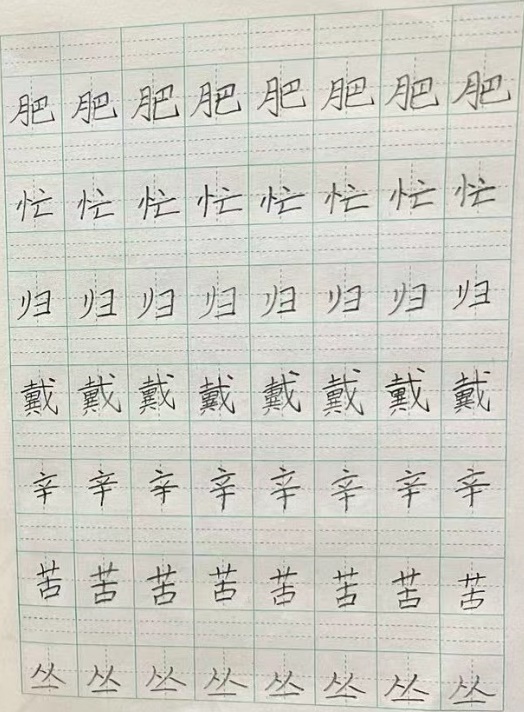 肥肥肥肥肥肥肥肥
忙忙忙忙忙忙忙忙
归归归归归归归归
戴戴戴戴戴戴戴戴
辛辛辛辛辛辛辛辛
苦苦苦苦苦苦苦苦
丛丛丛丛丛丛丛丛